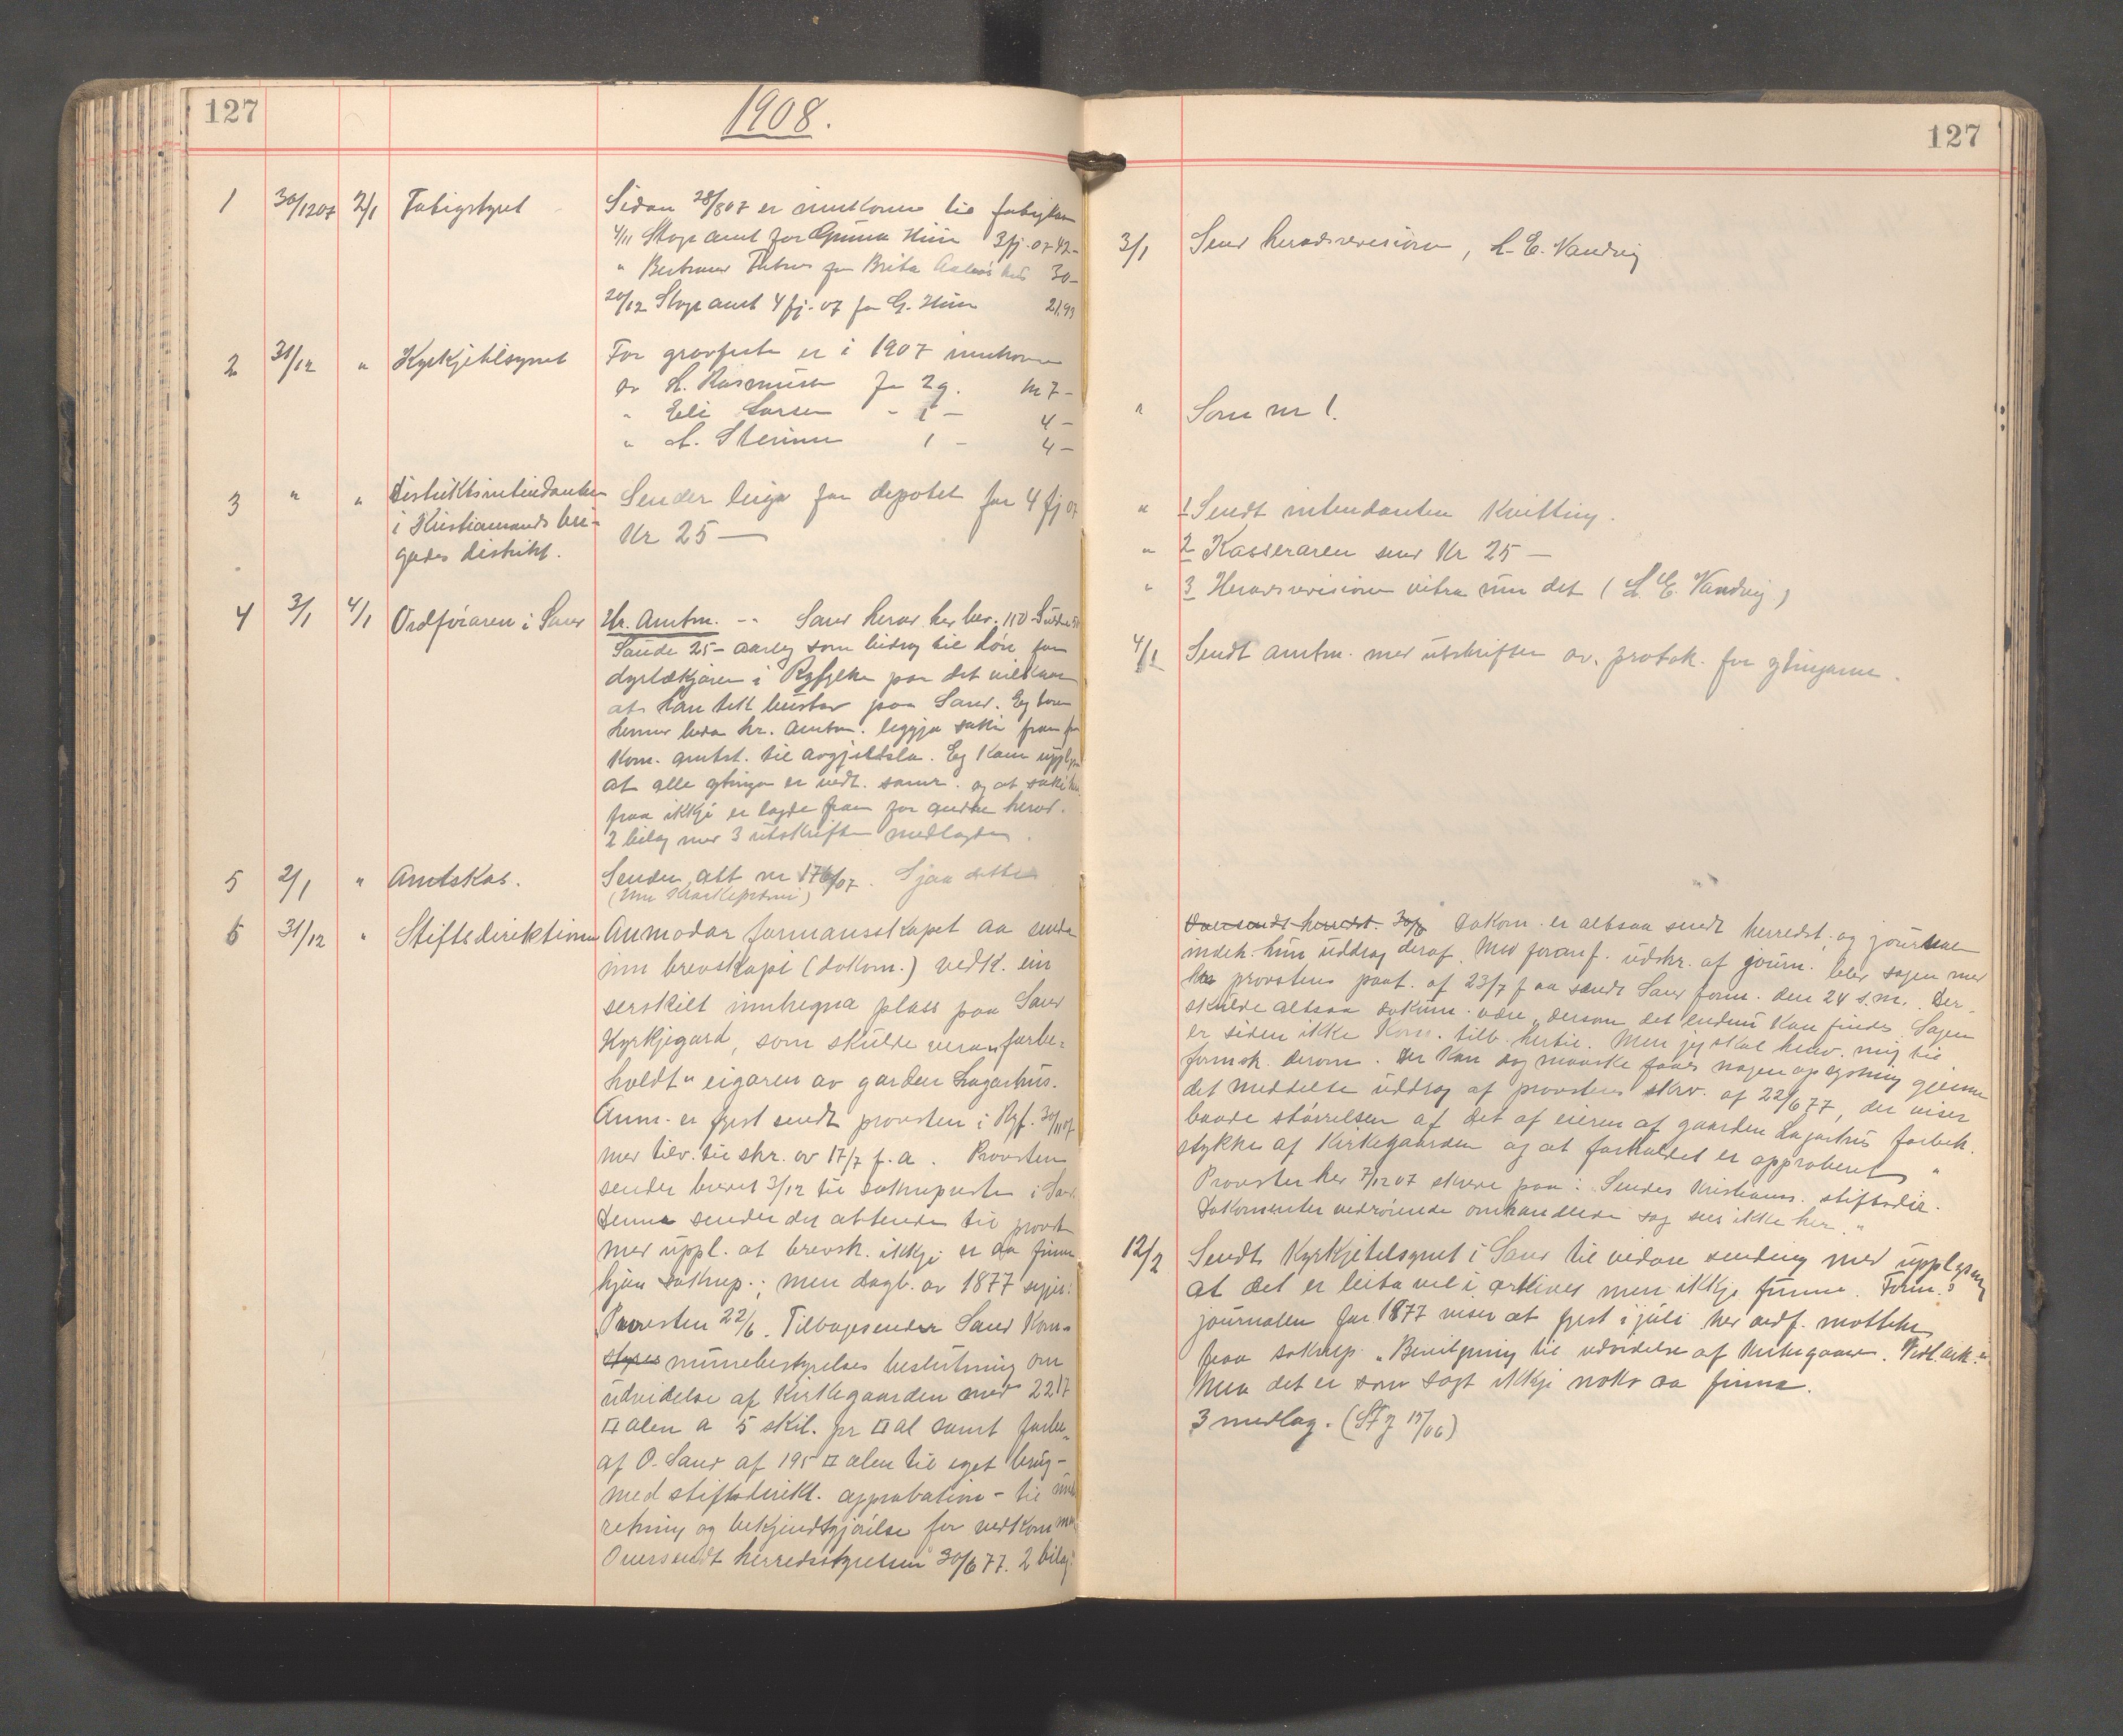 127
1908.
1 30/12 07 2/1 Fatigstyret
Sidan 28/8 07 er innkome til fatigkas
4/11 Stvgr amt for Gunna Hiim 3 fj. 07 42-
" for Brita 30-
20/12 Stvgr amt 4 fj. 07 for G. Hiim 21,93
2 31/12 " Kyrkjetilsynet
For gravfeste er i 1907 innkome
av L. Rasmusen for 2 g. kr 7-
" Eli Larsen - 1 - 4-
" L. Steinnes 1 - 4-
3 " " Distriktsintendanten
i Kristiansands bri-
gades distrikt.
Sender leiga for depotet for 4 fj 07
Kr 25 —
4 3/1 4/1 Ordføraren i Sand
Hr. Amtm. -- Sand herad hev bev. 150
Saude 25- aarleg som bidrag til løn for
dyrlækjaren i Ryfylke paa det vilkaar
at han tek bustad paa Sand. Eg torer
hermed beda hr. Amtm. leggja saki fram for
kom. amtst. til avgjerdsla. Eg kann upplysa
at alle gtingar er vedt. samr. og at saki her-
fraa ikkje er lagde fram for andre herad.
2 bilag med 3 utskrifter medlagde.
5 2/1 " Amtskas.
Sender att nr 176/07. Sjaa dette
6 31/12 " Stiftsdirektionen
Anmodar formansskapet aa senda
inn brevskapi (dokum.) vedk. ein
serskilt innhegna plass paa Sand
Kyrkjegard, som skulde vera "forbe-
holdt" eigaren av garden Lagarhus.
Anm. er fyrst sendt provsten i Ryf. 30/11 07
med tilv. til skr. av 17/7 f.a. Provsten
sender brevet 3/12 til soknepresten i Sand.
Denne sender det attende til provst
med uppl. at brevsk. ikkje er aa finna
hjaa soknep.; men dagb. av 1877 segjer:
Provsten 22/6. Tilbagesender Sand Kom-
munebestyrelses beslutning om
udvidelse af Kirkegaarden med 2217
□ alen a 5 skil. pr □ al samt forbe.
af O. Sand af 195 □ alen til eget brug -
med stiftsdirekt. approbation - til under
retning og bekjendtgjørelse for vedkomm.
Oversendt herredsstyrelsen 30/6 77. 2 bilag.
127
3/1 Send heradsrevisioen, L. E. Vandvig
" Som nr 1.
" 1 Sendt intendanten Kvitting.
" 2 Kasseraren send Kr 25 —
" 3 Heradsrevisioen vitra um det (L. E. Vandvig)
4/1 Sendt amtm. med utskrifter av protok. for gtingarne.
Oversendt herredst. 30/6 Dokum. er altsaa sendt herredst. og journalen
indeh. kun uddrag deraf. Med foranf. udskr. af journ. blev sagen med
provstens paat. af 23/7 f a sendt Sand form. den 24 s.m. Der
skulde altsaa dokum. være, dersom det endnu kan findes. Sagen
er siden ikke kom. tilb. hertil. Men jeg skal henv. mig til
formsk. derom. Der kan dog maaske faaes nogen oplysning gjennem
det meddelte uddrag af provstens skrv. af 22/6 77, der viser
baade størrelsen af det af eieren af gaarden Lagarhus forbeh.
stykke af Kirkegaarden og at forholdet er approberet "
Provsten hev 7/12 07 skreve paa: Sendes Kristians. stiftsdir.
Dokumenter vedrørende omhandlede sag sees ikke her."
12/2 Sendt Kyrkjetilsynet i Sand til vidare sending med upplysing
at det er leita vel i arkivet men ikkje funne. Form.s
journalen for 1877 viser at fyrst i juli hev ordf. motteke
fraa soknep. "Bevilgning til udvidelse af Kirkegaard. Vedl. ark."
Men det er som sagt ikkje noko aa finna.
3 medlag. (Sf J 15/06)